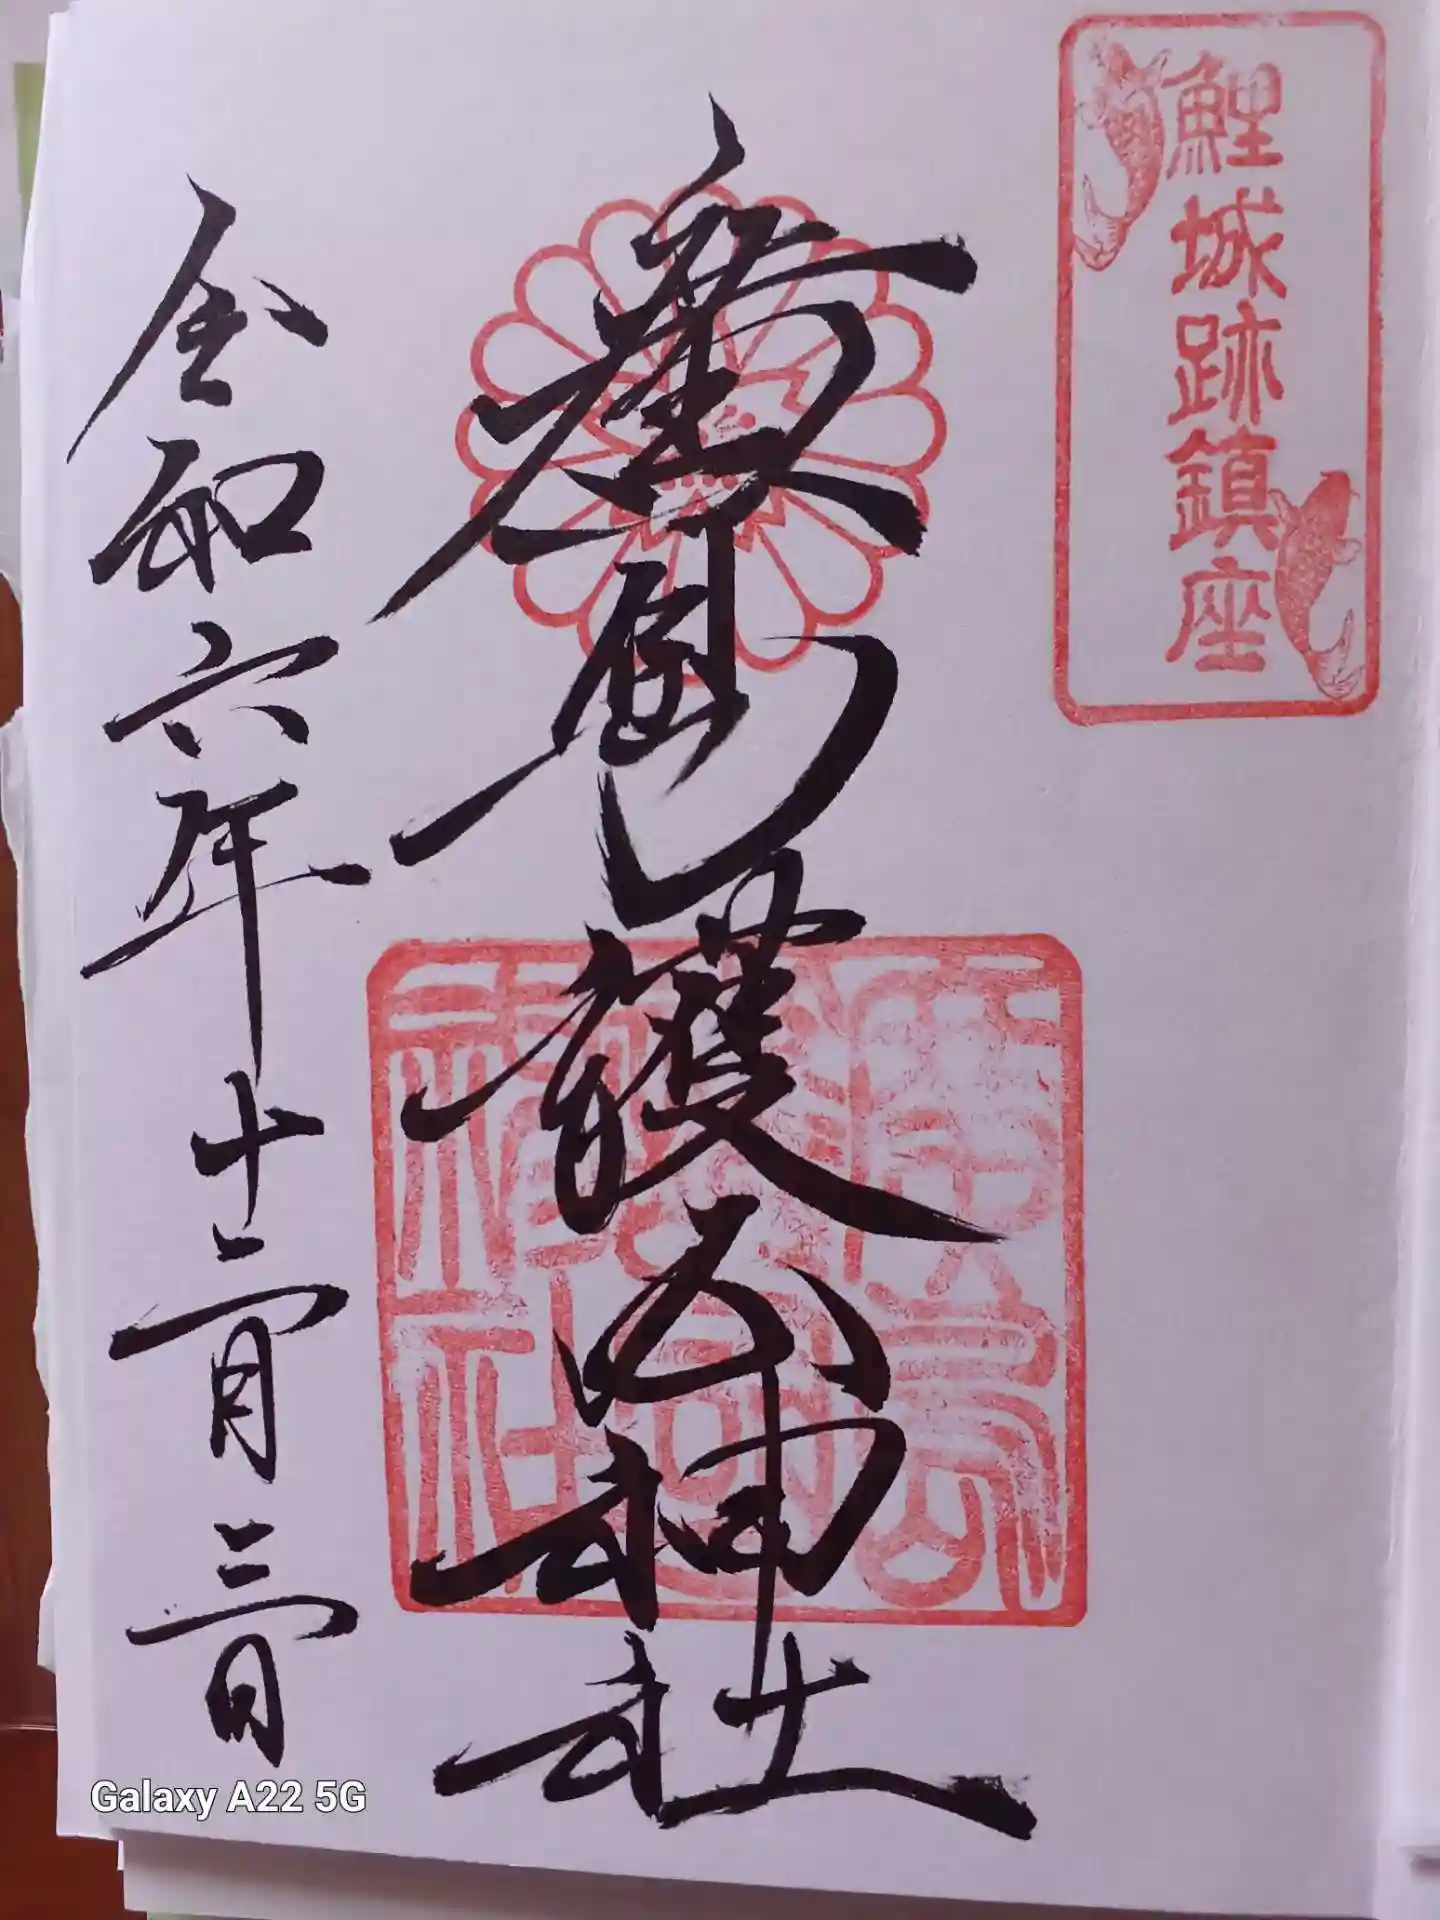 鯉城跡鎮座
廣島護國神社
令和六年十二月三日
Galaxy A22 5G